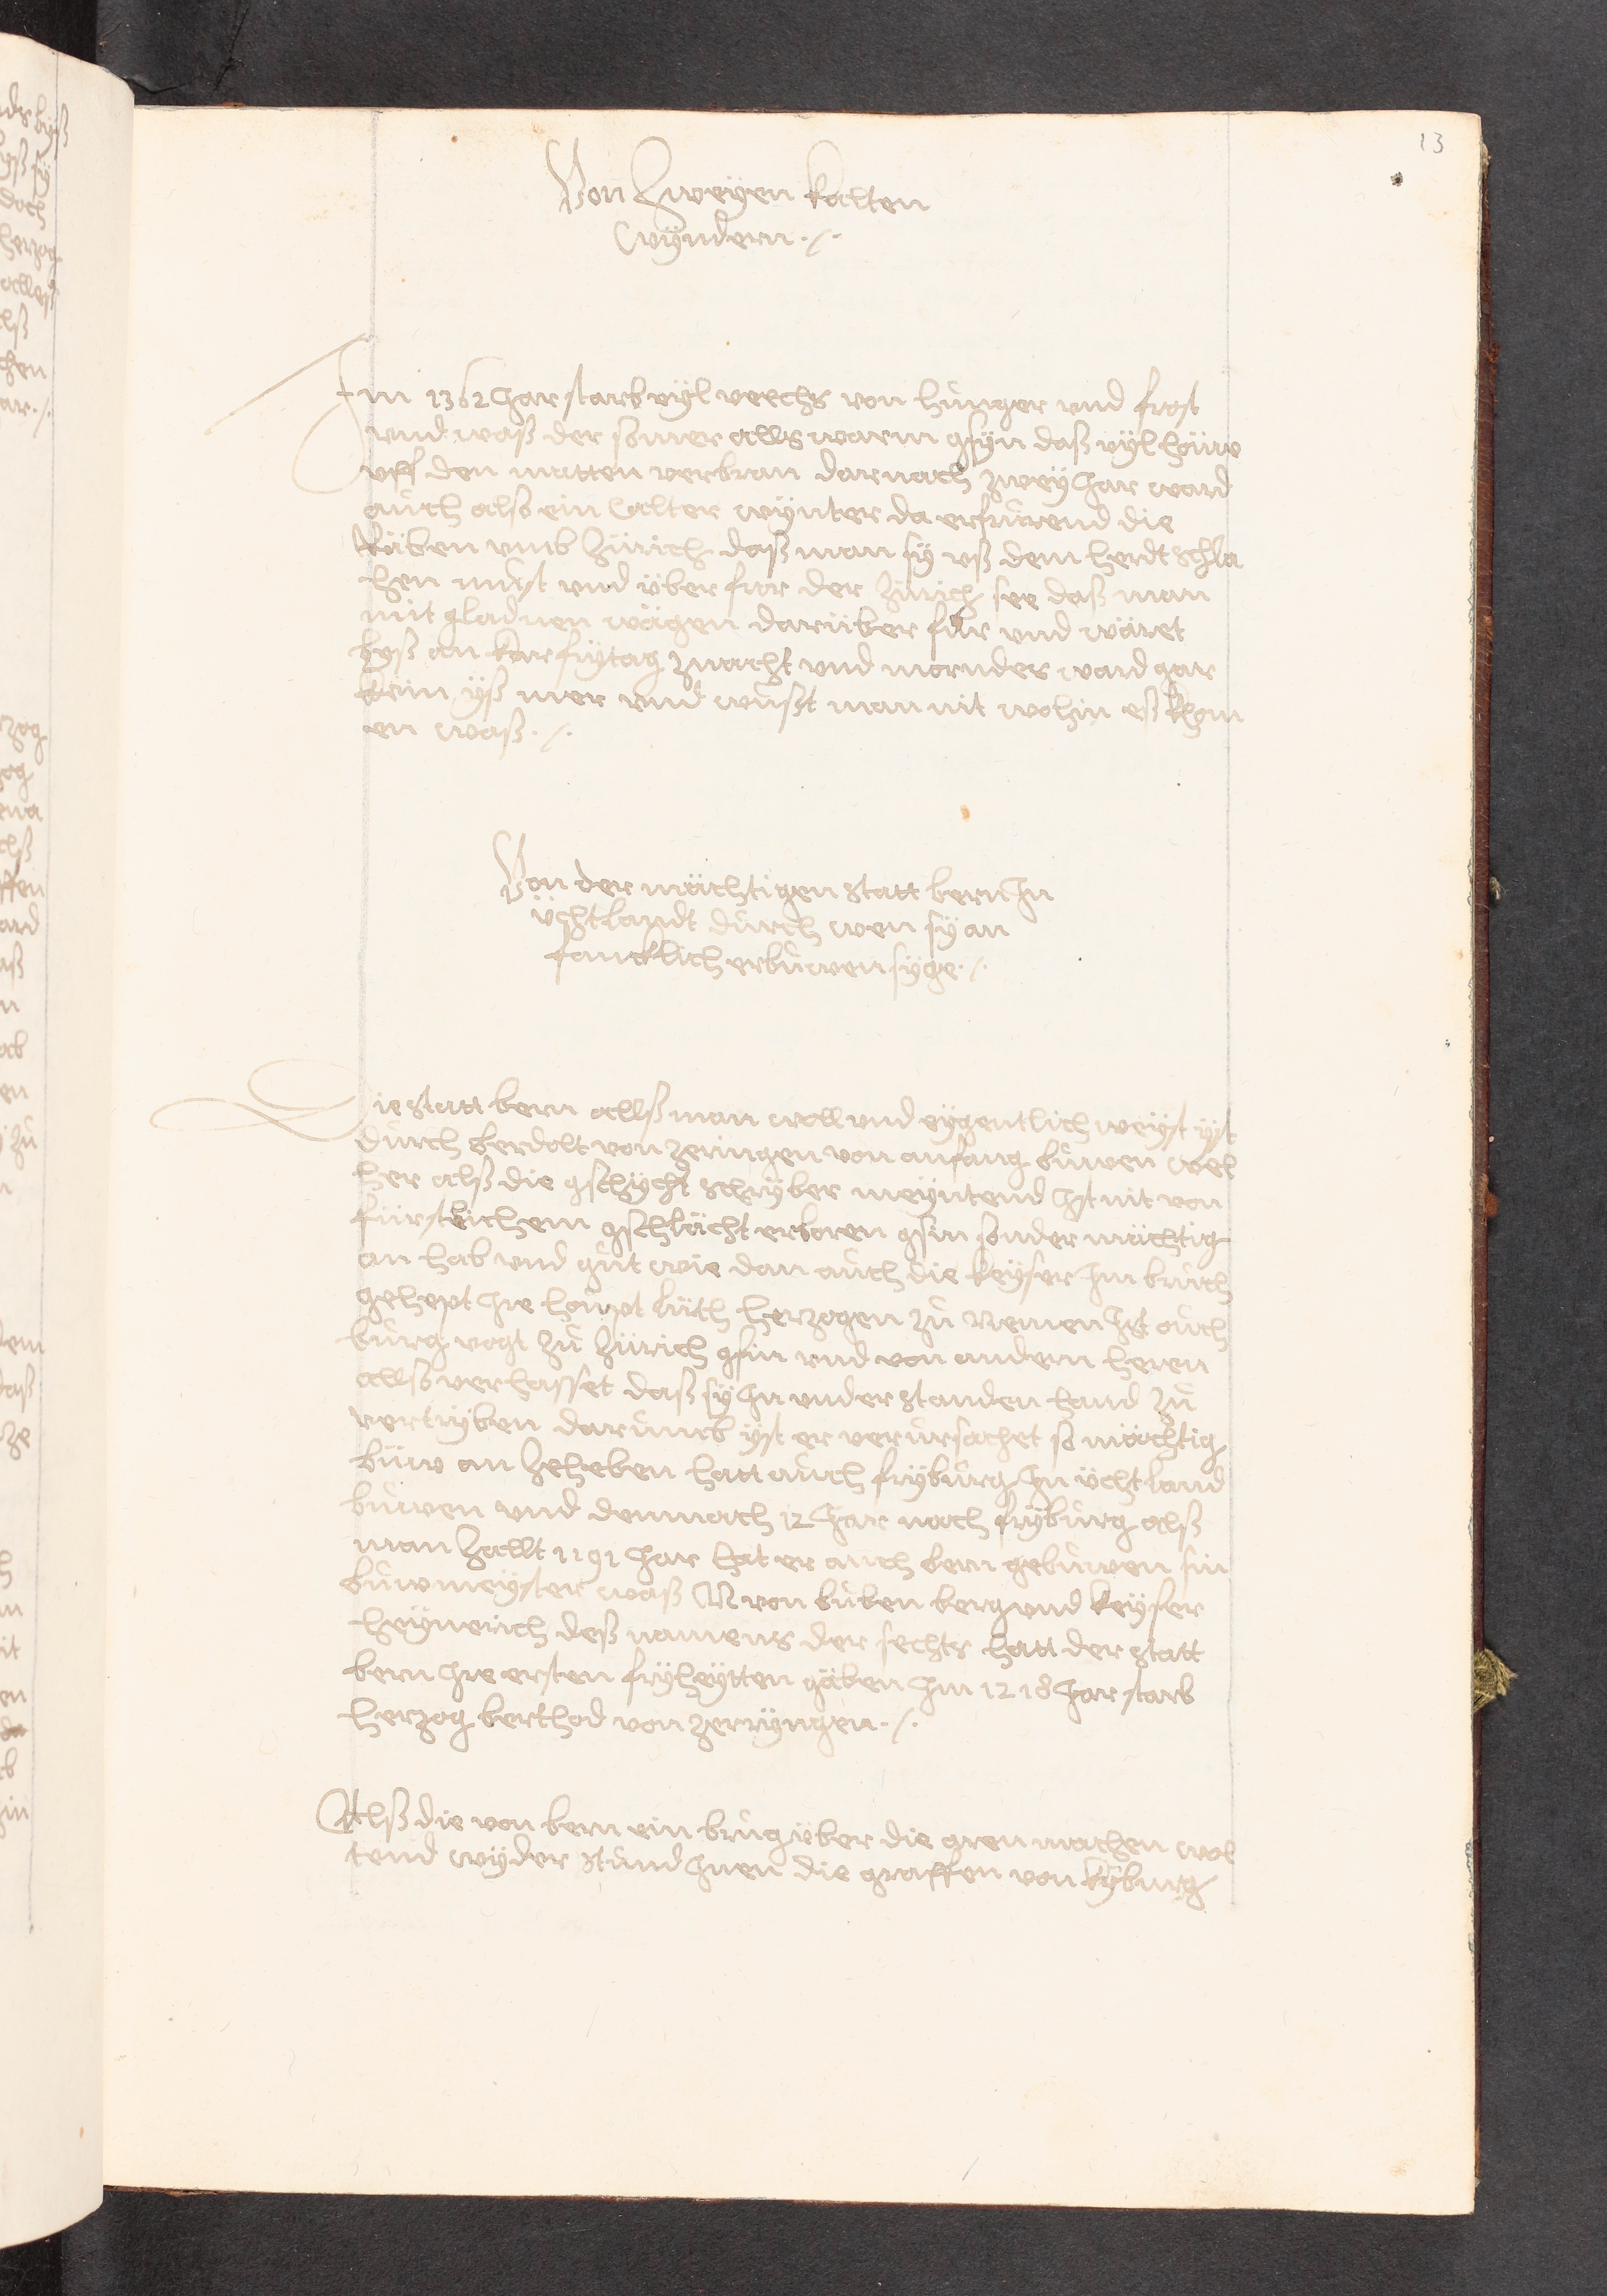 13
Von Zweÿen kalten
Wÿndern ·/·
Im 1362 Jar starb vÿl veechs von hunger vnd frost
vnd waß der somer alls warm gsÿn daß vÿl höuw
vff den matten verbran darnach zweÿ Jar ward
auch also ein kalter wÿnter da erfrurend die
Räben vmb Zürich daß man sÿ vß dem herdt schla
hen must vnd über fror der Zürich see daß man
mit gladnen wägen darüber für vnd wäret
byß an karfrÿtag znacht vnd mornder ward gar
kein ÿß mer vnd wußt man nit wohin eß khom
en waß ·/·
Von der mächtigen statt bern In
üchtlandt durch wen sÿ an
fancklich erbuwen sÿge ·/·
Die statt bern allß man woll vnd eÿgentlich weÿst ÿst
durch berdolt von zeringen von anfang buwen wel
her alß die gschÿcht schrÿber meÿntend Ist nit von
fürstlichem gschlächt erboren gsin sonder mächtig
an hab vnd gut wie dan auch die keÿser Im bruch
gehept Ire houpt lüth herzogen zu nemen Ist ouch
burg vogt zu Zürich gsin vnd von andern heren
allso verhasset daß sÿ In vnderstanden hand zu
vertrÿben darumb ÿst er verursachet so mächtig
büw an Zeheben hatt auch frÿburg In ücht land
buwen vnd demnach 12 Jar nach frÿburg alß
man Zallt 1191 Jar hat er auch bern gebuwen sin
buwmeÿster waß N von buben berg vnd keÿser
heÿnerich deß namens der sechts hatt der statt
bern Ire ersten frÿheÿtten gäben Im 1218 Jar starb
herzog berthod von zerrÿngen ·/·
Alß die von bern ein brug über die aren machen wol
tend wÿder stund Inen die graffen von kÿburg